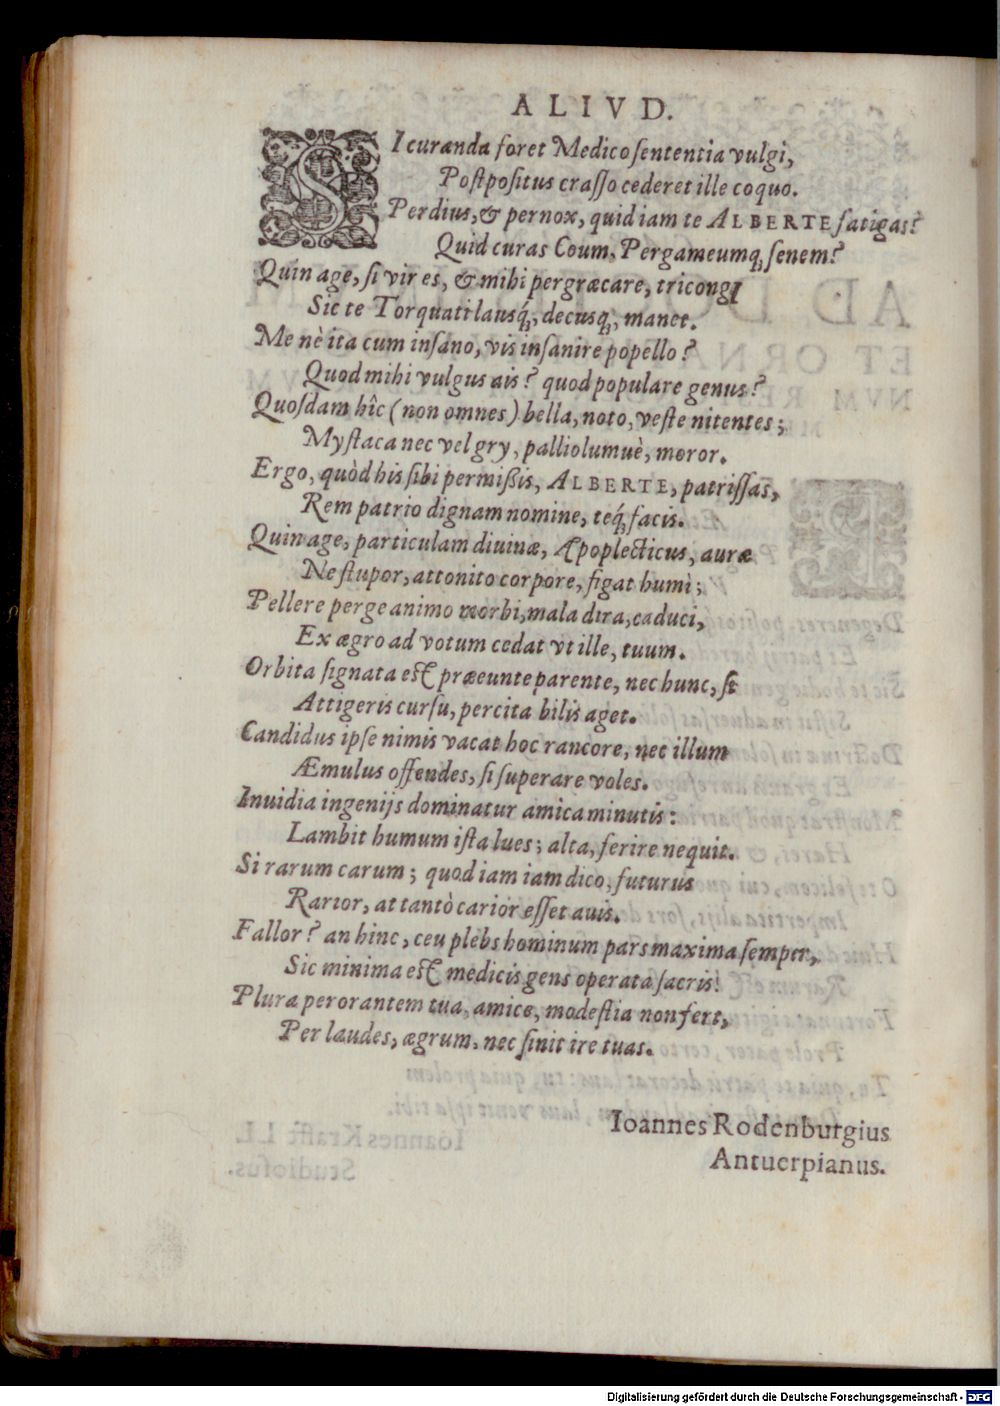 ALIVD.
SI curanda foret Medico sententia vulgi,
Postpositus crasso cederet ille coquo.
Perdius, & pernox, quid iam te ALBERTE fatigas?
Quid curas Coum, Pergameumq; senem?
Quin age, si vir es, & mihi pergræcare, tricongI
Sic te Torquati lausq́;, decusq;, manet.
Me nè ita cum insano, vis insanire popello?
Quod mihi vulgus ais? quod populare genus?
Quosdam hîc (non omnes) bella, noto, veste nitentes;
Mystaca nec vel gry, palliolumuè, moror.
Ergo, quòd his sibi permißis, ALBERTE, patrissas,
Rem patrio dignam nomine, teq́; facis.
Quin age, particulam diuinæ, Apoplecticus, auræ
Ne stupor, attonito corpore, figat humi;
Pellere perge animo morbi, mala dira, caduci,
Ex ægro ad votum cedat vt ille, tuum.
Orbita signata est præeunte parente, nec hunc, si
Attigeris cursu, percita bilis aget.
Candidus ipse nimis vacat hoc rancore, nec illum
Æmulus offendes, si superare voles.
Inuidia ingenijs dominatur amica minutis:
Lambit humum ista lues; alta, ferire nequit.
Si rarum carum; quod iam iam dico, futurus
Rarior, at tantò carior esset auis.
Fallor? an hinc, ceu plebs hominum pars maxima semper,
Sic minima est medicis gens operata sacris!
Plura perorantem tua, amice, modestia non fert,
Per laudes, ægrum, nec sinit ire tuas.
Ioannes Rodenburgius
Antuerpianus.
Digitalisierung gefördert durch die Deutsche Forschungsgemeinschaft - DFG